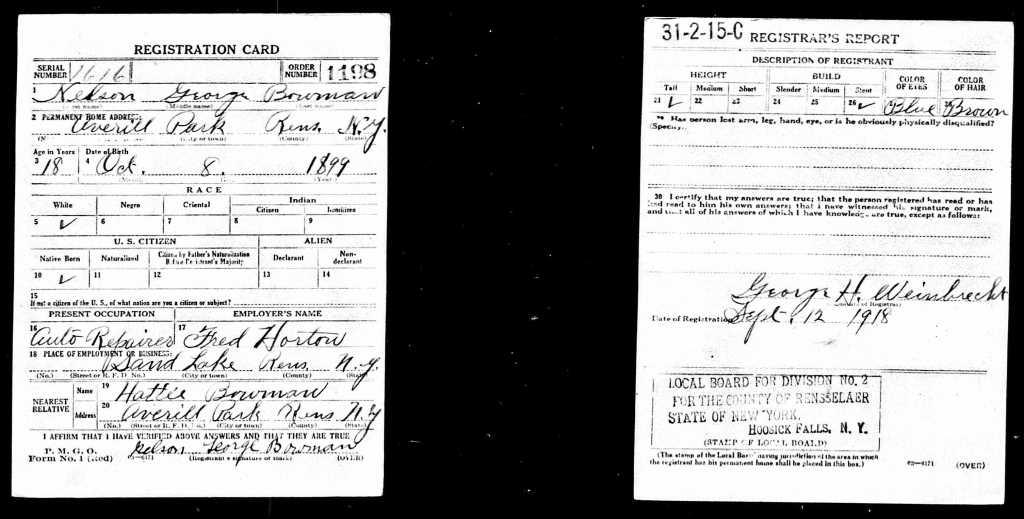 REGISTRATION CARD
SERIAL NUMBER 1616 ORDER NUMBER 1198
1 Nelson George Bowman
(Middle name)
2 PERMANENT HOME ADDRESS:
Averill Park Rens. N.Y.
(City or town) (County) (State)
Age in Years Date of Birth
3 18 4 Oct. 8. 1899
(Year)
RACE
White Negro Oriental Indian
Citizen
5 ✓ 6 7 8 9
U. S. CITIZEN ALIEN
Native Born Naturalized Citizen by Father's Naturalization Before Registrant's Majority Declarant Non-declarant
10 ✓ 11 12 13 14
15
If not a citizen of the U. S., of what nation are you a citizen or subject?
PRESENT OCCUPATION EMPLOYER'S NAME
16 Auto Repairer 17 Fred Horton
18 PLACE OF EMPLOYMENT OR BUSINESS:
Sand Lake Rens. N.Y.
(No.) (Street or R. F. D. No.) (City or town) (County) (State)
NEAREST RELATIVE Name 19 Hattie Bowman
Address 20 Averill Park Rens N.Y
(No.) (Street or R. F. D. No.) (City or town) (County) (State)
I AFFIRM THAT I HAVE VERIFIED ABOVE ANSWERS AND THAT THEY ARE TRUE
P. M. G. O.
Form No. 1 (Red) 03—6171 Nelson George Bowman
(Registrant's signature or mark) (OVER)
31-2-15-C REGISTRAR'S REPORT
DESCRIPTION OF REGISTRANT
HEIGHT BUILD COLOR OF EYES COLOR OF HAIR
Tall Medium Short Slender Medium Stout
21 ✓ 22 23 24 25 26 ✓ Blue Brown
29 Has person lost arm, leg, hand, eye, or is he obviously physically disqualified?
(Specify.)
30 I certify that my answers are true; that the person registered has read or has
had read to him his own answers; that I have witnessed his signature or mark,
and that all of his answers of which I have knowledge are true, except as follows:
George H. Weinbrecht
Date of Registration Sept. 12 1918
LOCAL BOARD FOR DIVISION NO. 2
FOR THE COUNTY OF RENSSELAER
STATE OF NEW YORK.
HOOSICK FALLS, N. Y.
(STAMP OF LOCAL BOARD)
(The stamp of the Local Board having jurisdiction of the area in which
the registrant has his permanent home shall be placed in this box.)
03—6171 (OVER)